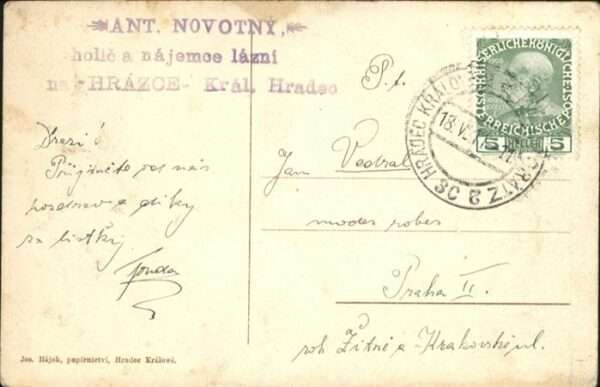 ANT. NOVOTNÝ,
holič a nájemce lázní
na -HRÁZCE- Král. Hradec
P. t.
HRADEC KRÁLO
18.V.
GRÄTZ 2 3C
KAISERLICHE KÖNIGLICHE
ÖSTERREICHISCHE POST
5 HELLER 5
Drazí!
Přijměte od nás
pozdrav a díky
za lístky.
Tonda
Jan Vedral
modes robes
Praha II.
roh Žitné a Krakovské ul.
Jos. Hájek, papírnictví, Hradec Králové.